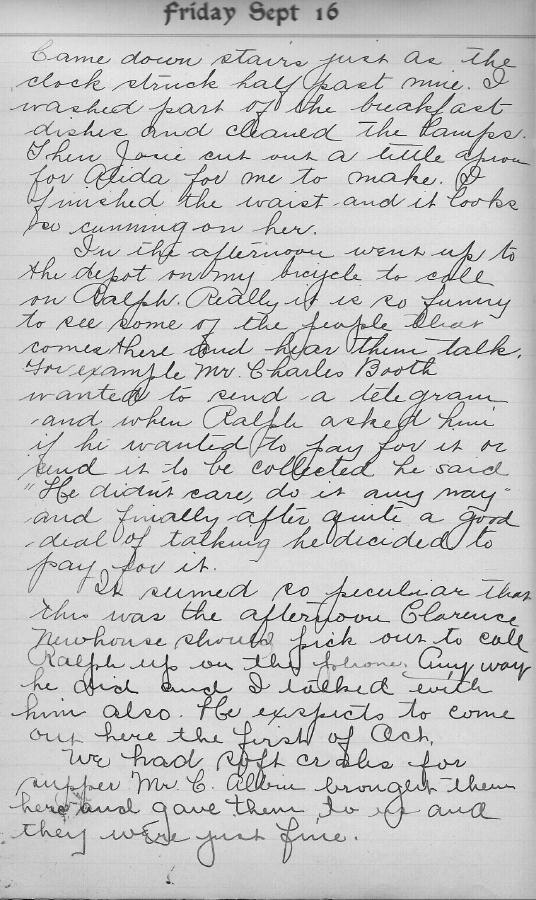 Friday Sept 16
Came down stairs just as the
clock struck half past nine. I
washed part of the breakfast
dishes and cleaned the lamps.
Then Josie cut out a little apron
for Alida for me to make. I
finished the waist and it looks
so cunning on her.
In the afternoon went up to
the depot on my bicycle to call
on Ralph. Really it is so funny
to see some of the people that
comes there and hear them talk.
For example Mr. Charles Booth
wanted to send a telegram
and when Ralph asked him
if he wanted to pay for it or
send it to be collected he said
"He didn't care, do it any way"
and finally after quite a good
deal of talking he decided to
pay for it.
It seemed so peculiar that
this was the afternoon Clarence
Newhouse should pick out to call
Ralph up on the phone. Any way
he did and I talked with
him also. He expects to come
out here the first of Oct.
We had soft crabs for
supper Mr. C. brought them
here and gave them to us and
they were just fine.